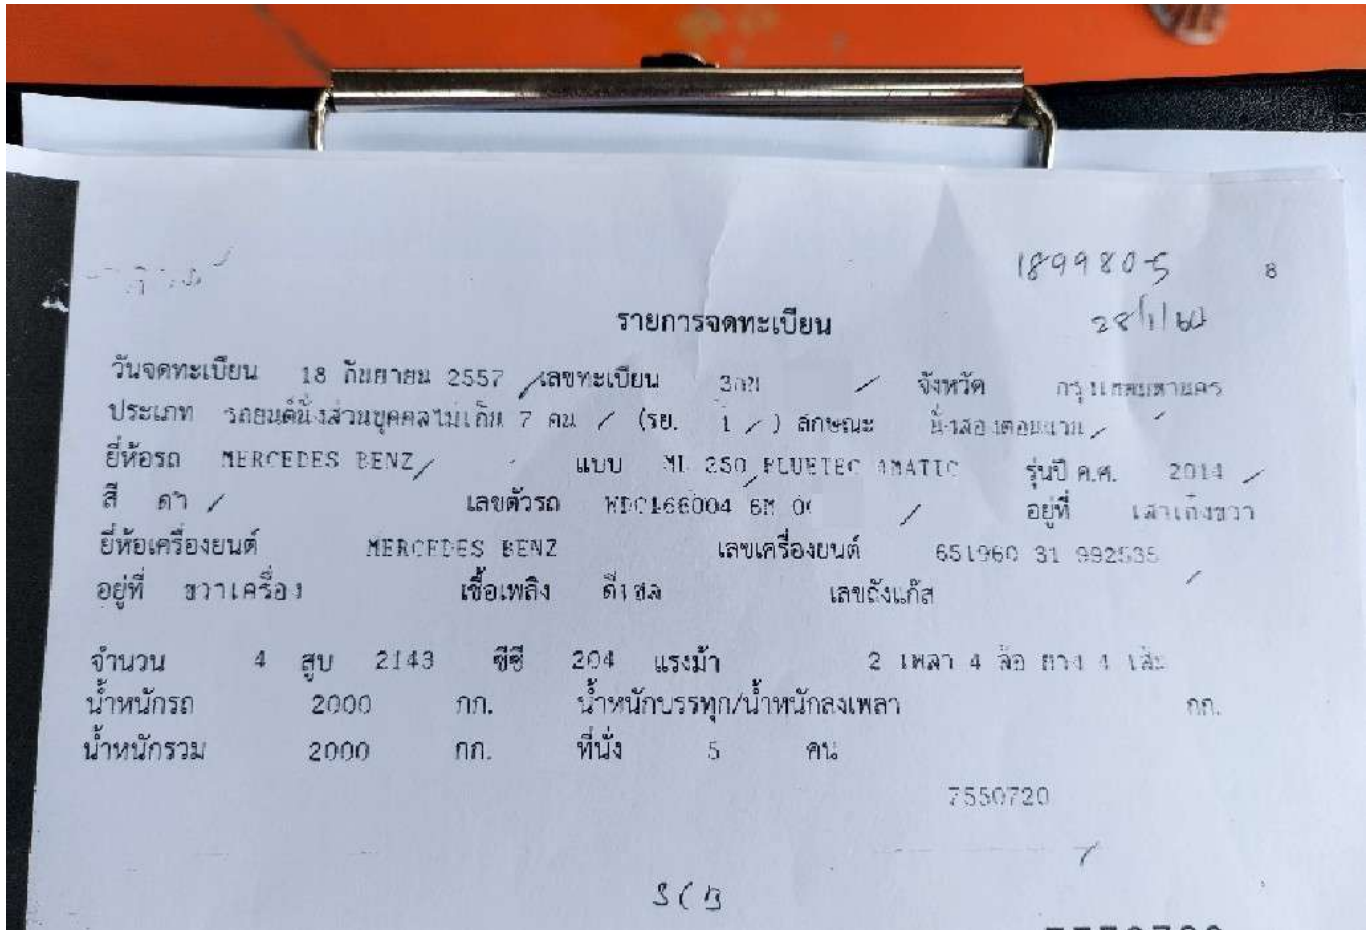 1899805 8
28/1/60
รายการจดทะเบียน
วันจดทะเบียน 18 กันยายน 2557 เลขทะเบียน 3กฆ จังหวัด กรุงเทพมหานคร
ประเภท รถยนต์นั่งส่วนบุคคลไม่เกิน 7 คน (รย. 1) ลักษณะ นั่งสองตอนแวน
ยี่ห้อรถ MERCEDES BENZ แบบ ML 250 BLUETEC 4MATIC รุ่นปี ค.ศ. 2014
สี ดำ เลขตัวรถ WDC166004 6M 0 อยู่ที่ เสาเก๋งขวา
ยี่ห้อเครื่องยนต์ MERCEDES BENZ เลขเครื่องยนต์ 651960 31 992535
อยู่ที่ ขวาเครื่อง เชื้อเพลิง ดีเซล เลขถังแก๊ส
จำนวน 4 สูบ 2143 ซีซี 204 แรงม้า 2 เพลา 4 ล้อ ยาง 4 เส้น
น้ำหนักรถ 2000 กก. น้ำหนักบรรทุก/น้ำหนักลงเพลา กก.
น้ำหนักรวม 2000 กก. ที่นั่ง 5 คน
7550720
SCB